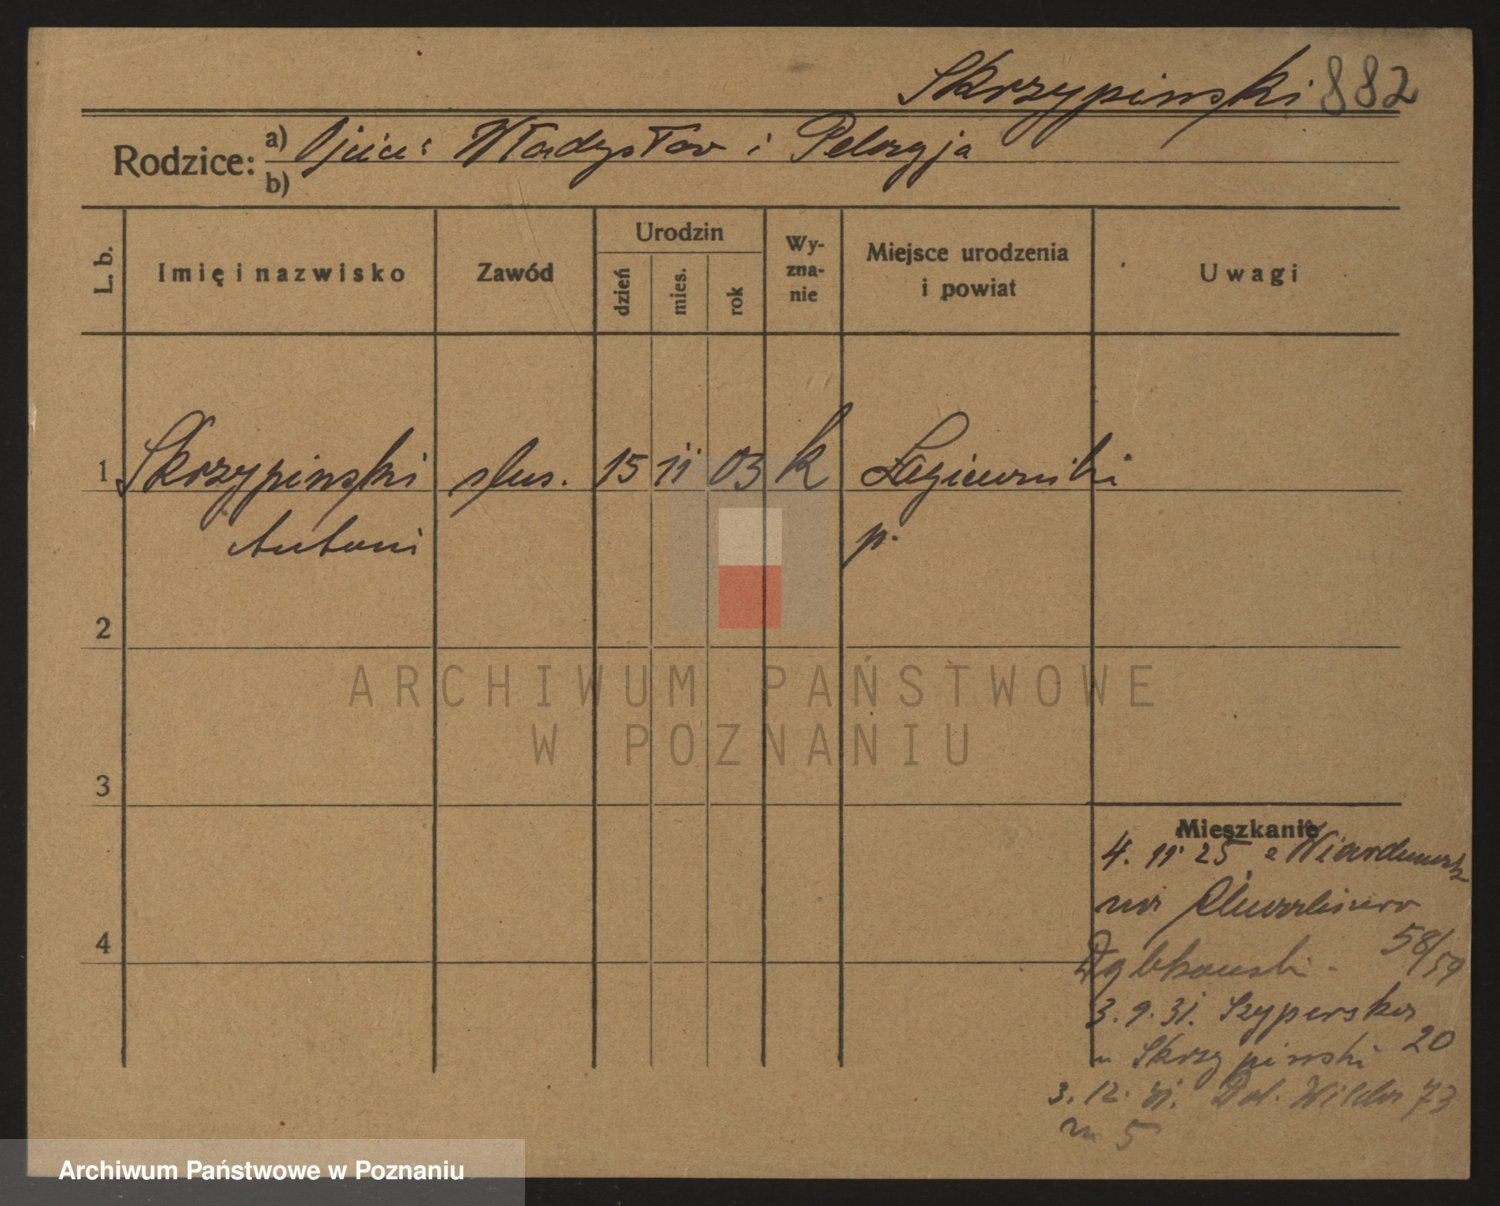 Skrzypinski 882
Rodzice: a) Ojciec: Władysław i Pelagja
b)
L. b. Imię i nazwisko Zawód Urodzin dzień mies. rok Wy-zna-nie Miejsce urodzenia i powiat Uwagi
1 Skrzypinski ślus. 15 11 03 k Łagiewniki
Antoni p.
2
ARCHIWUM PAŃSTWOWE
W POZNANIU
3
Mieszkanie
4. 11 25 z
na
4
58/59
3. 9. 31. Szyperska
u Skrzypinski 20
3. 12. 31. Dol. Wilda 73
m 5
Archiwum Państwowe w Poznaniu